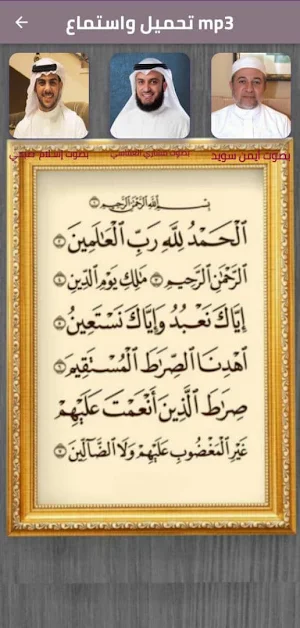 تحميل واستماع mp3
بصوت أيمن سويد
بصوت مشاري العفاسي
بصوت إسلام صبحي
بِسْمِ ٱللَّهِ ٱلرَّحْمَٰنِ ٱلرَّحِيمِ ۝١
ٱلْحَمْدُ لِلَّهِ رَبِّ ٱلْعَٰلَمِينَ ۝٢
ٱلرَّحْمَٰنِ ٱلرَّحِيمِ ۝٣ مَٰلِكِ يَوْمِ ٱلدِّينِ ۝٤
إِيَّاكَ نَعْبُدُ وَإِيَّاكَ نَسْتَعِينُ ۝٥
ٱهْدِنَا ٱلصِّرَٰطَ ٱلْمُسْتَقِيمَ ۝٦
صِرَٰطَ ٱلَّذِينَ أَنْعَمْتَ عَلَيْهِمْ
غَيْرِ ٱلْمَغْضُوبِ عَلَيْهِمْ وَلَا ٱلضَّآلِّينَ ۝٧